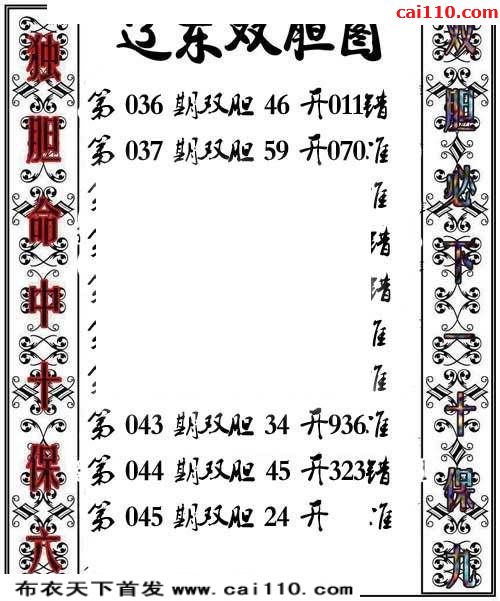 cai110.com
辽东双胆图
第 036 期双胆 46 开011错
第 037 期双胆 59 开070准
准
错
错
准
准
第 043 期双胆 34 开936准
第 044 期双胆 45 开323错
第 045 期双胆 24 开 准
独胆命中十保六
双胆必下一十保九
布衣天下首发 www.cai110.com